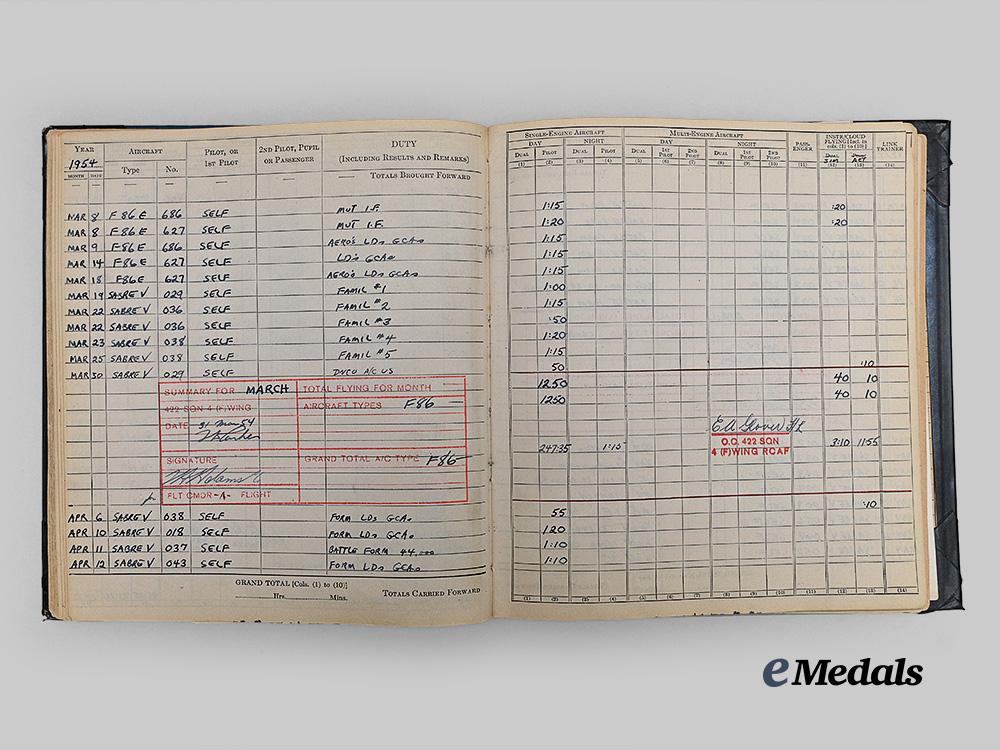 YEAR AIRCRAFT PILOT, OR 1ST PILOT 2ND PILOT, PUPIL OR PASSENGER DUTY (INCLUDING RESULTS AND REMARKS)
1954
MONTH DATE Type No.
— — — — — — TOTALS BROUGHT FORWARD
MAR 8 F86E 686 SELF MUT I.F.
MAR 8 F86E 627 SELF MUT I.F.
MAR 9 F86E 686 SELF AERO'S LDs GCAs
MAR 14 F86E 627 SELF LD's GCAs
MAR 18 F86E 627 SELF AERO'S LDs GCAs
MAR 19 SABRE V 029 SELF FAMIL #1
MAR 22 SABRE V 036 SELF FAMIL #2
MAR 22 SABRE V 036 SELF FAMIL #3
MAR 23 SABRE V 038 SELF FAMIL #4
MAR 25 SABRE V 038 SELF FAMIL #5
MAR 30 SABRE V 029 SELF A/C US
SUMMARY FOR MARCH TOTAL FLYING FOR MONTH
422 SQN 4 (F) WING AIRCRAFT TYPES F86 —
DATE 31 Mar 54
SIGNATURE GRAND TOTAL A/C TYPE F86
FLT CMDR -A- FLIGHT
APR 6 SABRE V 038 SELF FORM LDs GCAs
APR 10 SABRE V 018 SELF FORM LDs GCAs
APR 11 SABRE V 037 SELF BATTLE FORM 44,000
APR 12 SABRE V 043 SELF FORM LDs GCAs
GRAND TOTAL [Cols. (1) to (10)]
Hrs. Mins. TOTALS CARRIED FORWARD
SINGLE-ENGINE AIRCRAFT MULTI-ENGINE AIRCRAFT PASSENGER INSTR/CLOUD FLYING [Incl. in cols. (1) to (10)] LINK TRAINER
DAY NIGHT DAY NIGHT
DUAL PILOT DUAL PILOT DUAL 1ST PILOT 2ND PILOT DUAL 1ST PILOT 2ND PILOT
(1) (2) (3) (4) (5) (6) (7) (8) (9) (10) (11) (12) (13) (14)
1:15 :20
1:20 :20
1:15
1:15
1:15
1:00
1:15
:50
1:20
1:15
50 :10
1250 40 10
1250 40 10
O.C. 422 SQN
4 (F) WING RCAF
247:35 1:15 3:10 11:55
55 :10
1:20
1:10
1:10
(1) (2) (3) (4) (5) (6) (7) (8) (9) (10) (11) (12) (13) (14)
eMedals